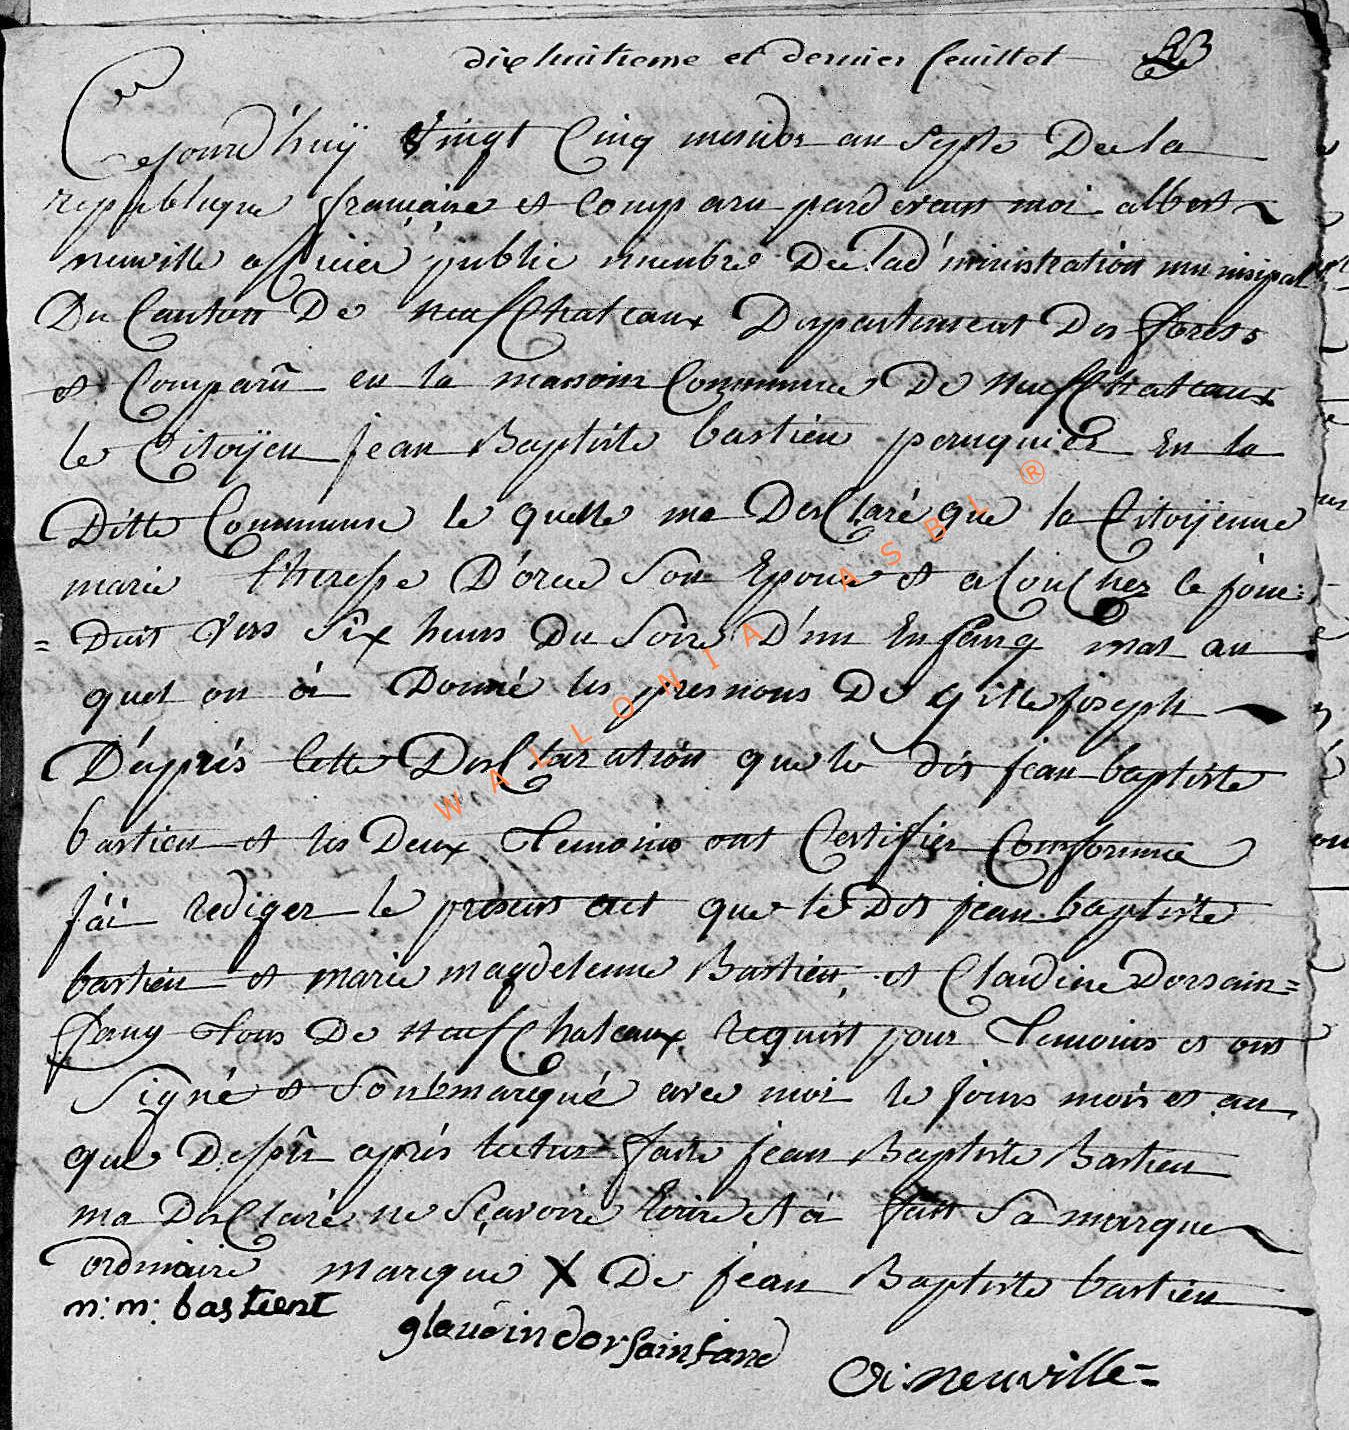 dixhuitieme et dernier feuillet
Cejourd'huÿ Vingt Cinq mesidor an Septe De la
republique françaìse et Comparu pardevant moi albert
neuville officier public membre De l'ad'ministration munisipal
Du Canton De neufChateaux Departement Des forets
et Comparû en la maison Commune De neufChateaux
le Citoÿen jean Baptiste bastien peruquier En la
Ditte Commune le quelle ma DesClaré que la Citoÿenne
marie theresse D'orée Son Epouse et acouChez ce jour
= Duit Vers Six heurs Du Soire D'un Enfang mal au
quel on à Donné les presnoms De gille joseph
D'après Cette DesClaration que le dit jean baptiste
bastien et les Deux Temoins ont Certifier Conforme
j'ai rediger le present act que le Dit jean baptiste
bastien et marie magdelenne Bastien, et Claudine Dorsain=
fang tous De neufChateaux requist pour Temoins et ont
Signé et Soubmarqué avec moi le jours mois et an
que Desûs après lecture faite jean Baptiste Bastien
ma DesClaré ne Sçavoire Ecrire et à fait Sa marque
ordinaire marque X De jean Baptiste bastien
m: m: bastient
glaudindorsainfand
A: neuville=
WALLONIA ASBL ®